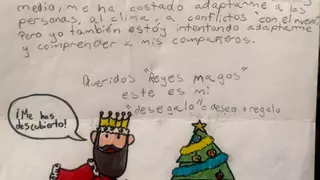 medio, me ha costado adaptarme a las
personas, al clima, a conflictos "con el nuevo".
Pero yo también estoy intentando adaptarme
y comprender a mis compañeros.
Queridos "Reyes Magos"
este es mi
"desegalo" = deseo + regalo
¡Me has
descubierto!